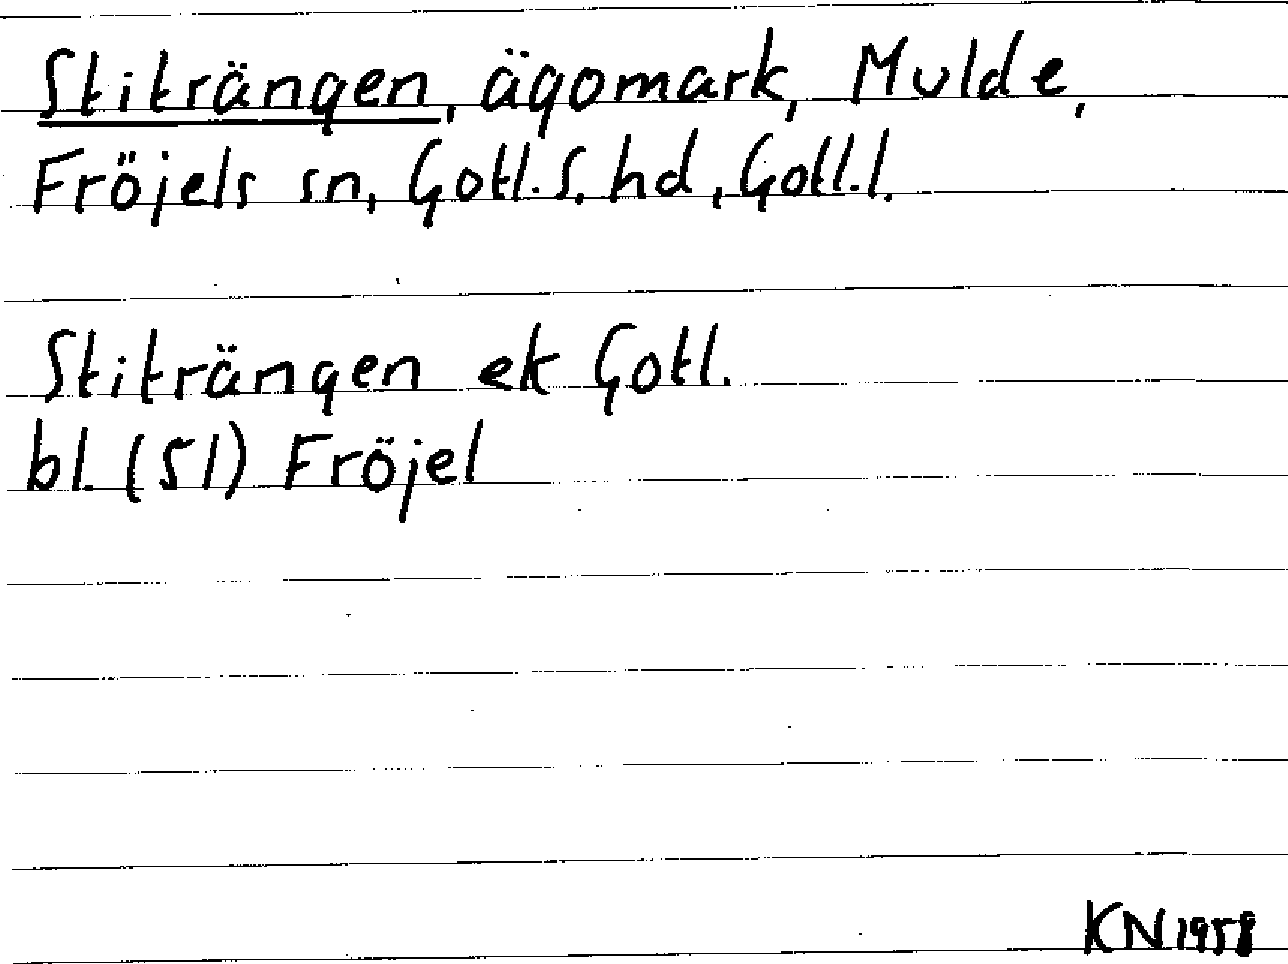 Stiträngen, ägomark, Mulde,
Fröjels sn, Gotl. S. hd, Gotl. l.
Stiträngen ek Gotl.
bl. (51) Fröjel
KN 1958